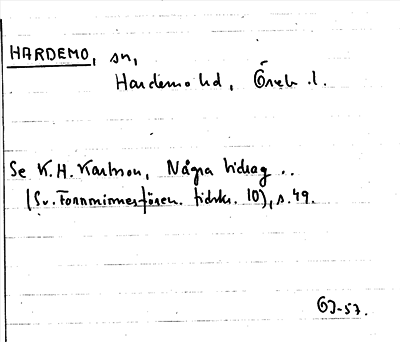 HARDEMO, sn,
Hardemo hd, Öreb. l.
Se K. H. Karlsson, Några bidrag ..
(Sv. Fornminnesfören. tidskr. 10), s. 49.
GJ-57.